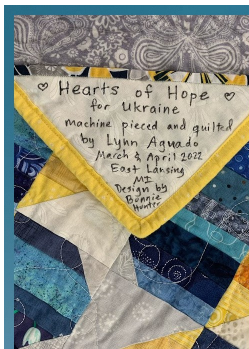 ♡ Hearts of Hope ♡
for Ukraine
machine pieced and quilted
by Lynn Aguado
March & April 2022
East Lansing
MI
Design by
Bonnie
Hunter